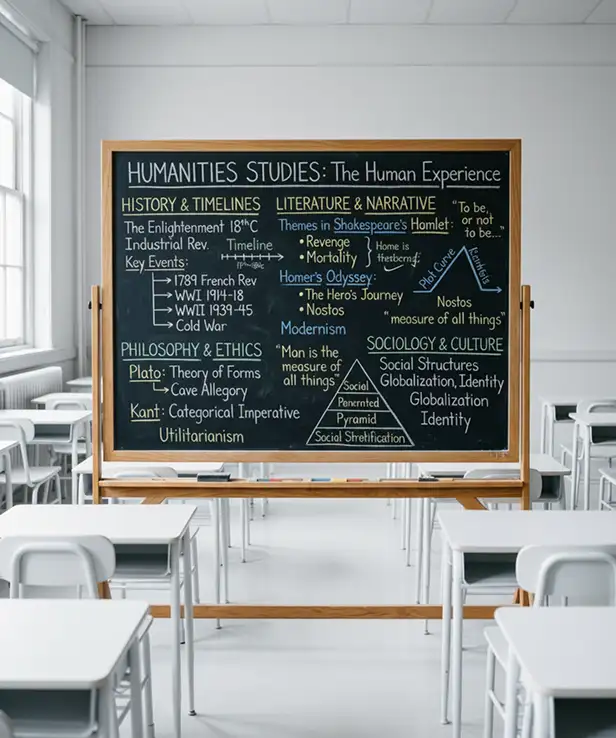 HUMANITIES STUDIES: The Human Experience
HISTORY & TIMELINES
The Enlightenment 18thC
Industrial Rev.
Timeline
Key Events:
1789 French Rev
WWI 1914-18
WWII 1939-45
Cold War
LITERATURE & NARRATIVE
Themes in Shakespeare's Hamlet:
"To be,
or not
to be..."
• Revenge
• Mortality
Home is
Plot Curve
Homer's Odyssey:
• The Hero's Journey
• Nostos
Nostos
"measure of all things"
Modernism
PHILOSOPHY & ETHICS
Plato: Theory of Forms
Cave Allegory
Kant: Categorical Imperative
Utilitarianism
"Man is the
measure of
all things"
Social
Penerated
Pyramid
Social Stretification
SOCIOLOGY & CULTURE
Social Structures
Globalization, Identity
Globalization
Identity